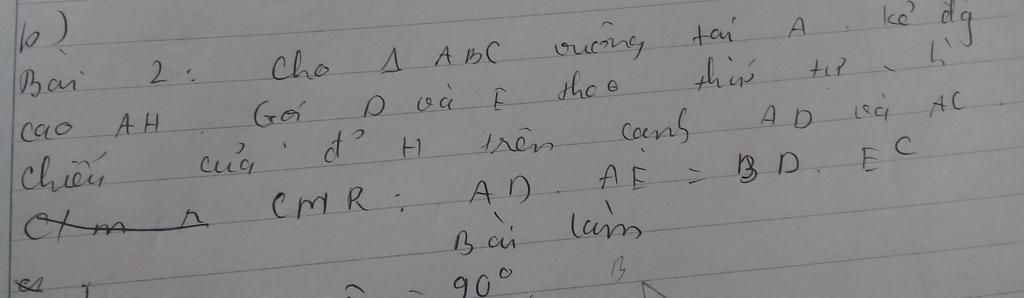 b)
Bài 2: Cho Δ ABC vuông tại A. kẻ đg
cao AH. Gọi D và E theo thứ tự là h`
chiếu của đ' H trên cạnh AD và AC
CMR: AD. AE = BD. EC
Bài làm
= 90° B